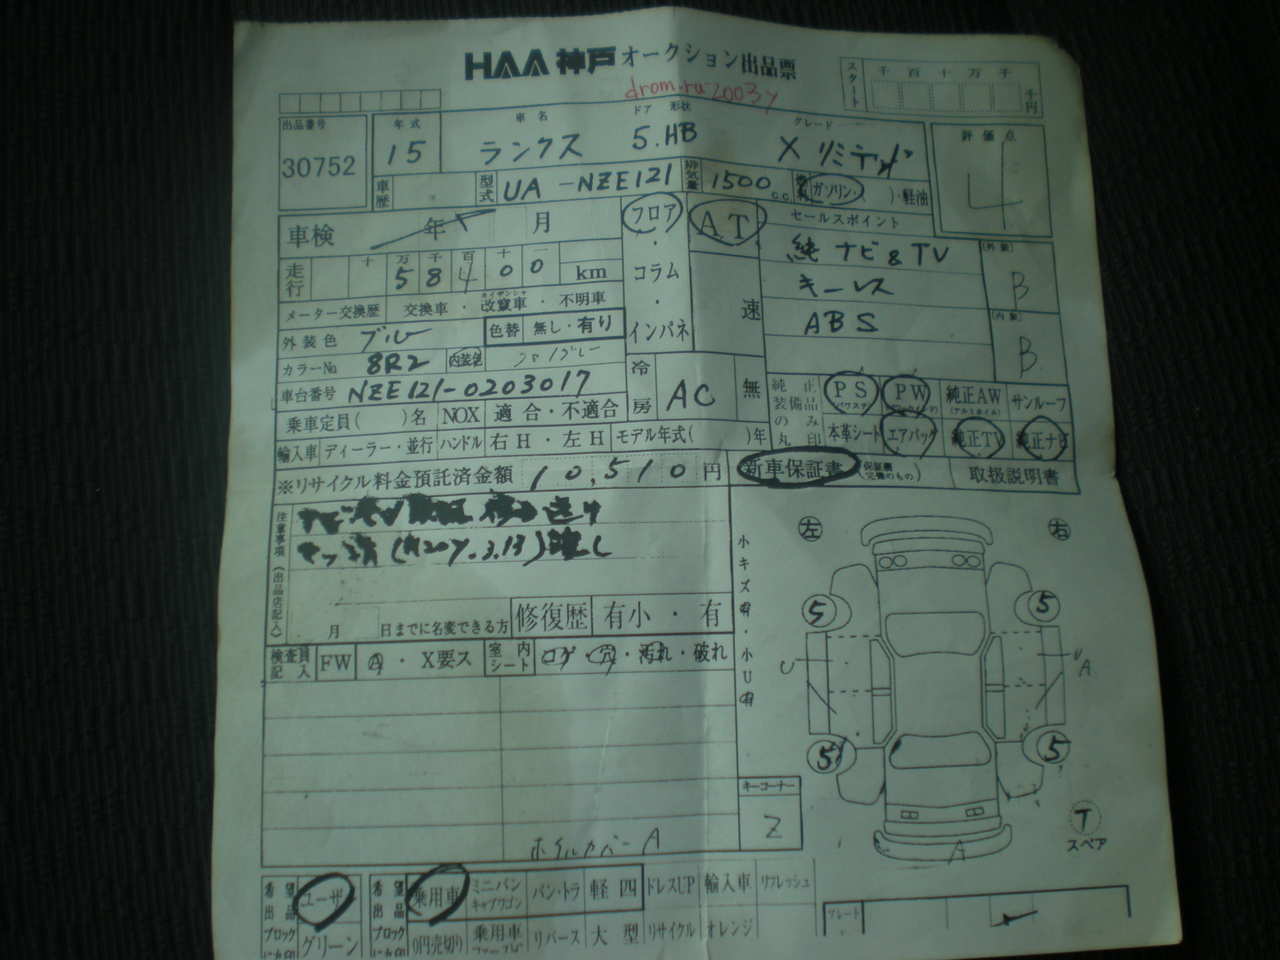 HAA神戸オークション出品票
drom.ru2003y
スタート 千 百 十 万 千 千円
出品番号 30752
年式 15
車名 ランクス
ドア 形状 5.HB
グレード Xリミテッド
評価点 4
車歴
型式 UA-NZE121
排気量 1500 c.c.
ガソリン・( )・軽油
車検 年 月
フロア・コラム・インパネ
AT 速
セールスポイント
純ナビ&TV
キーレス
ABS
(外装) B
(内装) B
走行 十 万 千 百 十 一
58400 km
メーター交換歴 交換車・改竄車・不明車
外装色 ブルー
色替 無し・有り
カラーNo 8R2 内装色
車台番号 NZE121-0203017
冷房 AC 無
乗車定員( )名 NOX 適合・不適合
輸入車 ディーラー・並行 ハンドル 右H・左H モデル年式( )年
純正装備品のみ丸印 PS PW 純正AW サンルーフ
本革シート エアバッグ 純正TV 純正ナビ
※リサイクル料金預託済金額 10,510円
新車保証書 取扱説明書
注意事項(出品店記入)
月 日までに名変できる方
修復歴 有小・有
小キズ有・小U有
検査員記入 FW A・X要ス 室内シート コゲ・穴・汚れ・破れ
左 右
5 5
U A
5 5
A
T
スペア
キーコーナー
Z
ホイルカバーA
希望出品ブロック ユーザー グリーン
希望出品ブロック 乗用車 ミニバン キャブワゴン バン・トラ 軽四 ドレスUP 輸入車 リフレッシュ
0円売切り 乗用車 リバース 大型 リサイクル オレンジ
プレート